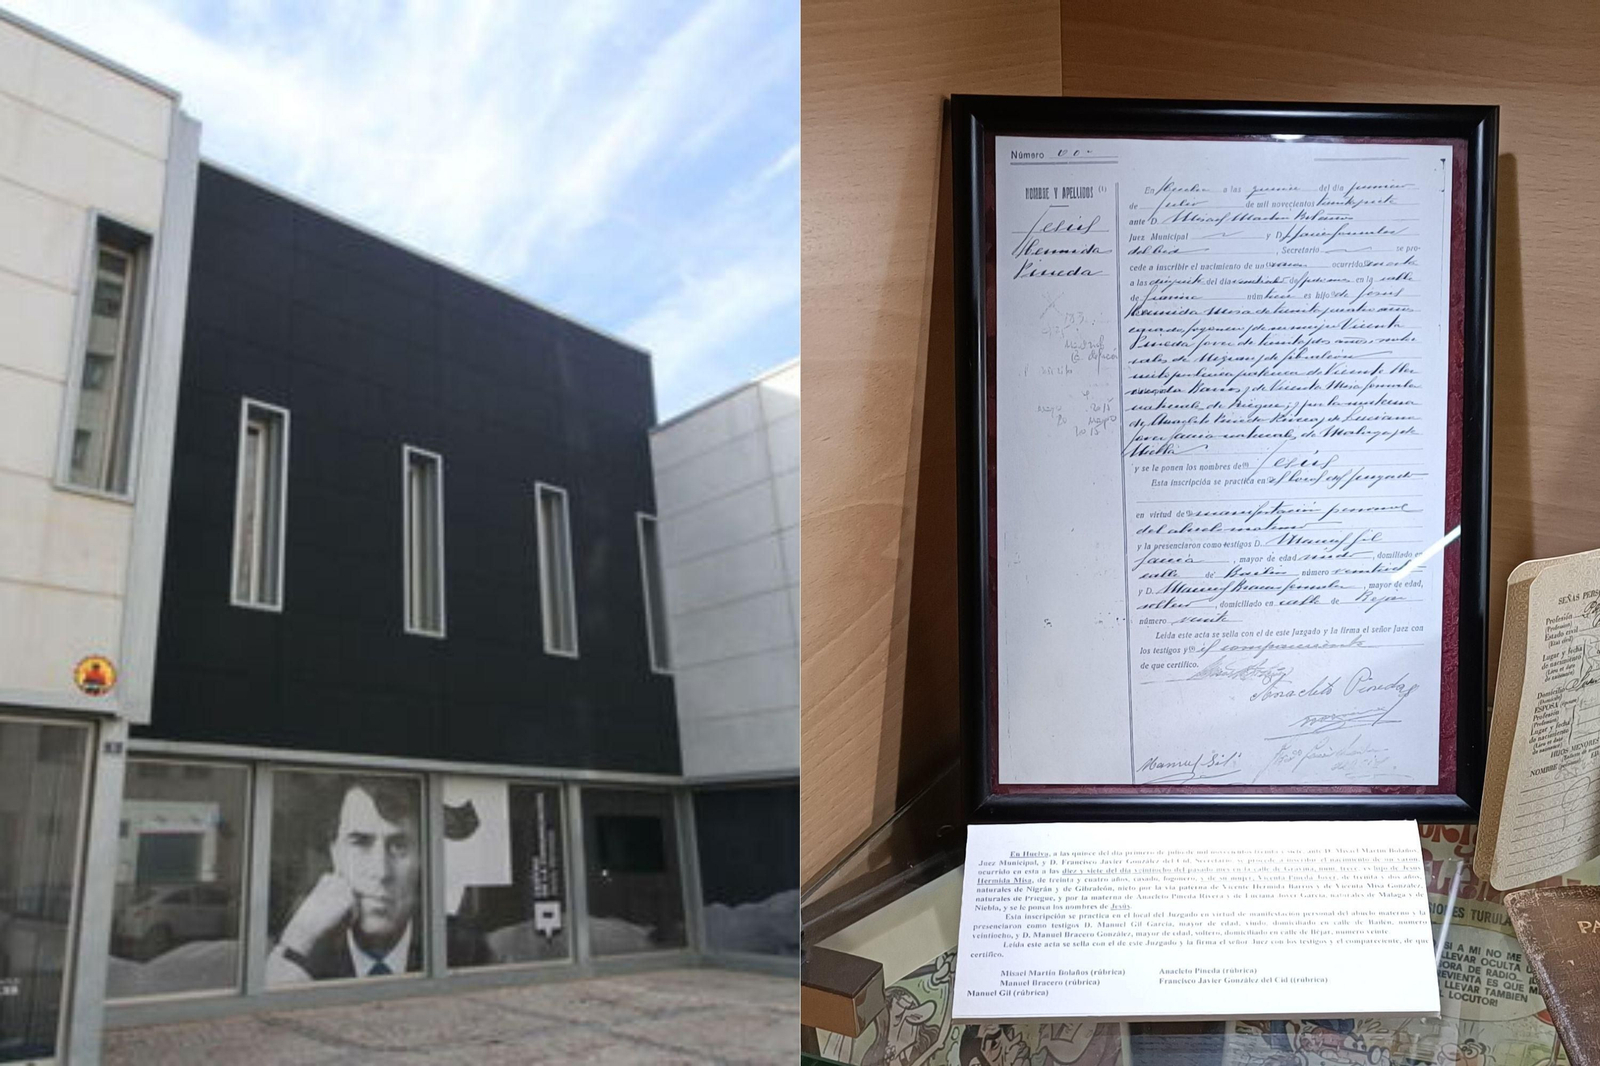 Número
NOMBRE Y APELLIDOS (1)
Jesús
Hermida
Pineda
En Huelva a las quince del día primero
de Julio de mil novecientos treinta y siete
ante D. Misael Martín Bolaños
Juez Municipal y D. Fco Javier González
del Cid, Secretario, se pro-
cede a inscribir el nacimiento de un varón ocurrido
a las diez y siete del día veintiocho del en la calle
de Gravina núm trece es hijo de Jesús
Hermida Misa de treinta y cuatro años
casado, logonero y de su mujer Vicenta
Pineda Jover de treinta y dos años natu-
rales de Nigrán y de Gibraleón
nieto por línea paterna de Vicente Her-
mida Barros y de Vicenta Misa González
naturales de Priegue; y por la materna
de Anacleto Pineda Rivera y de Luciana
Jover García naturales de Málaga y de
Niebla
y se le ponen los nombres de Jesús
Esta inscripción se practica en el local del Juzgado
en virtud de manifestación personal
del abuelo materno
y la presenciaron como testigos D. Manuel Gil
García, mayor de edad viudo, domiciliado en
calle de Bailén número veintiocho
y D. Manuel Bracero González, mayor de edad,
soltero, domiciliado en calle de Béjar
número veinte
Leída este acta se sella con el de este Juzgado y la firma el señor Juez con
los testigos y el compareciente
de que certifico.
Anacleto Pineda
Manuel Gil
En Huelva, a las quince del día primero de julio de mil novecientos treinta y siete, ante D. Misael Martín Bolaños,
Juez Municipal, y D. Francisco Javier González del Cid, Secretario, se procede a inscribir el nacimiento de un varón,
ocurrido en esta a las diez y siete del día veintiocho del pasado mes en la calle de Gravina, núm. trece, es hijo de Jesús
Hermida Misa, de treinta y cuatro años, casado, logonero, y de su mujer, Vicenta Pineda Jover, de treinta y dos años,
naturales de Nigrán y de Gibraleón, nieto por la vía paterna de Vicente Hermida Barros y de Vicenta Misa González,
naturales de Priegue, y por la materna de Anacleto Pineda Rivera y de Luciana Jover García, naturales de Málaga y de
Niebla, y se le ponen los nombres de Jesús.
Esta inscripción se practica en el local del Juzgado en virtud de manifestación personal del abuelo materno y la
presenciaron como testigos D. Manuel Gil García, mayor de edad, viudo, domiciliado en calle de Bailén, numero
veintiocho, y D. Manuel Bracero González, mayor de edad, soltero, domiciliado en calle de Béjar, numero veinte.
Leída este acta se sella con el de este Juzgado y la firma el señor Juez con los testigos y el compareciente, de que
certifico.
Misael Martín Bolaños (rúbrica) Anacleto Pineda (rúbrica)
Manuel Bracero (rúbrica) Francisco Javier González del Cid ((rúbrica)
Manuel Gil (rúbrica)
SEÑAS PERS
Profesión
Estado civil
Lugar y fecha
de nacimiento
Domicilio
ESPOSA
Profesión
Lugar y fecha
de nacimiento
HIJOS MENORES
NOMBRE
PA
IONES TURULA
SI A MI NO ME
LLEVAR OCULTA U
ORA DE RADIO...
REVIENTA ES QUE M
LLEVAR TAMBIEN
LOCUTOR!